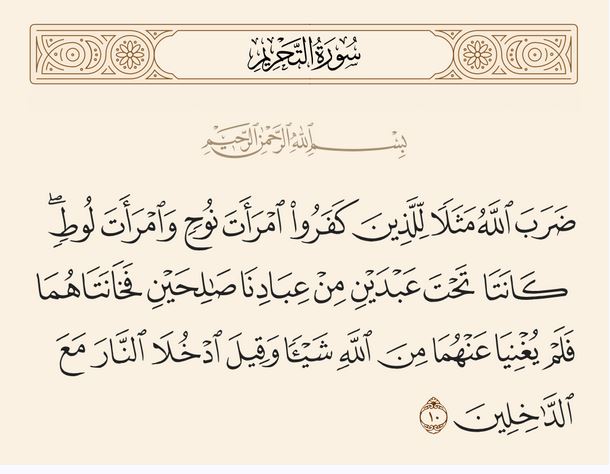 سُورَةُ التَّحْرِيمِ
بِسْمِ اللَّهِ الرَّحْمَٰنِ الرَّحِيمِ
ضَرَبَ ٱللَّهُ مَثَلًا لِّلَّذِينَ كَفَرُوا۟ ٱمْرَأَتَ نُوحٍ وَٱمْرَأَتَ لُوطٍ ۖ
كَانَتَا تَحْتَ عَبْدَيْنِ مِنْ عِبَادِنَا صَٰلِحَيْنِ فَخَانَتَاهُمَا
فَلَمْ يُغْنِيَا عَنْهُمَا مِنَ ٱللَّهِ شَيْـًٔا وَقِيلَ ٱدْخُلَا ٱلنَّارَ مَعَ
ٱلدَّٰخِلِينَ ١٠